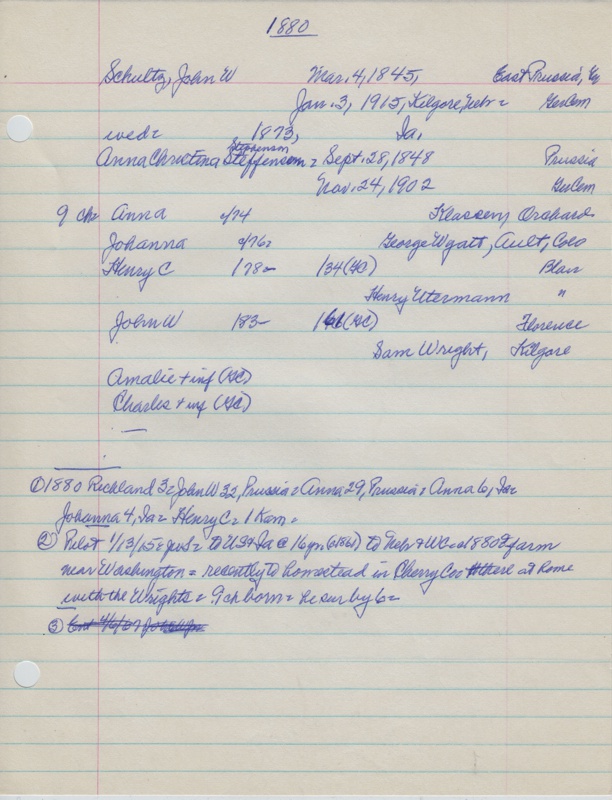 1880
Schultz, John W Mar. 4, 1845, East Prussia,
Jan. 3, 1915, Kilgore, Nebr = GerCem
wed = 1873, Ia,
Stephenson
Anna Christina Steffensen = Sept. 28, 1848 Prussia
Nov. 24, 1902 GerCem
9 ch = Anna c/74 Klassen, Orchard
Johanna c/76 = George Wyatt, Ault, Colo
Henry C 178 = 134 (GC) Blair
Henry Utermann "
John W 183 - 161 (GC) Florence
Sam Wright, Kilgore
Amalie + inf (GC)
Charles + inf (GC)
① 1880 Richland 3 = John W 32, Prussia = Anna 29, Prussia = Anna 6, Ia =
Johanna 4, Ia = Henry C = 1 Kom =
② Pilot 1/13/15 = = to US + Ia @ 16 yrs (c1861) to Nebr + WC c1880 = farm
near Washington = recently to homestead in Cherry Co = there at home
with the Wrights = 9 ch born = he sur by 6 =
③